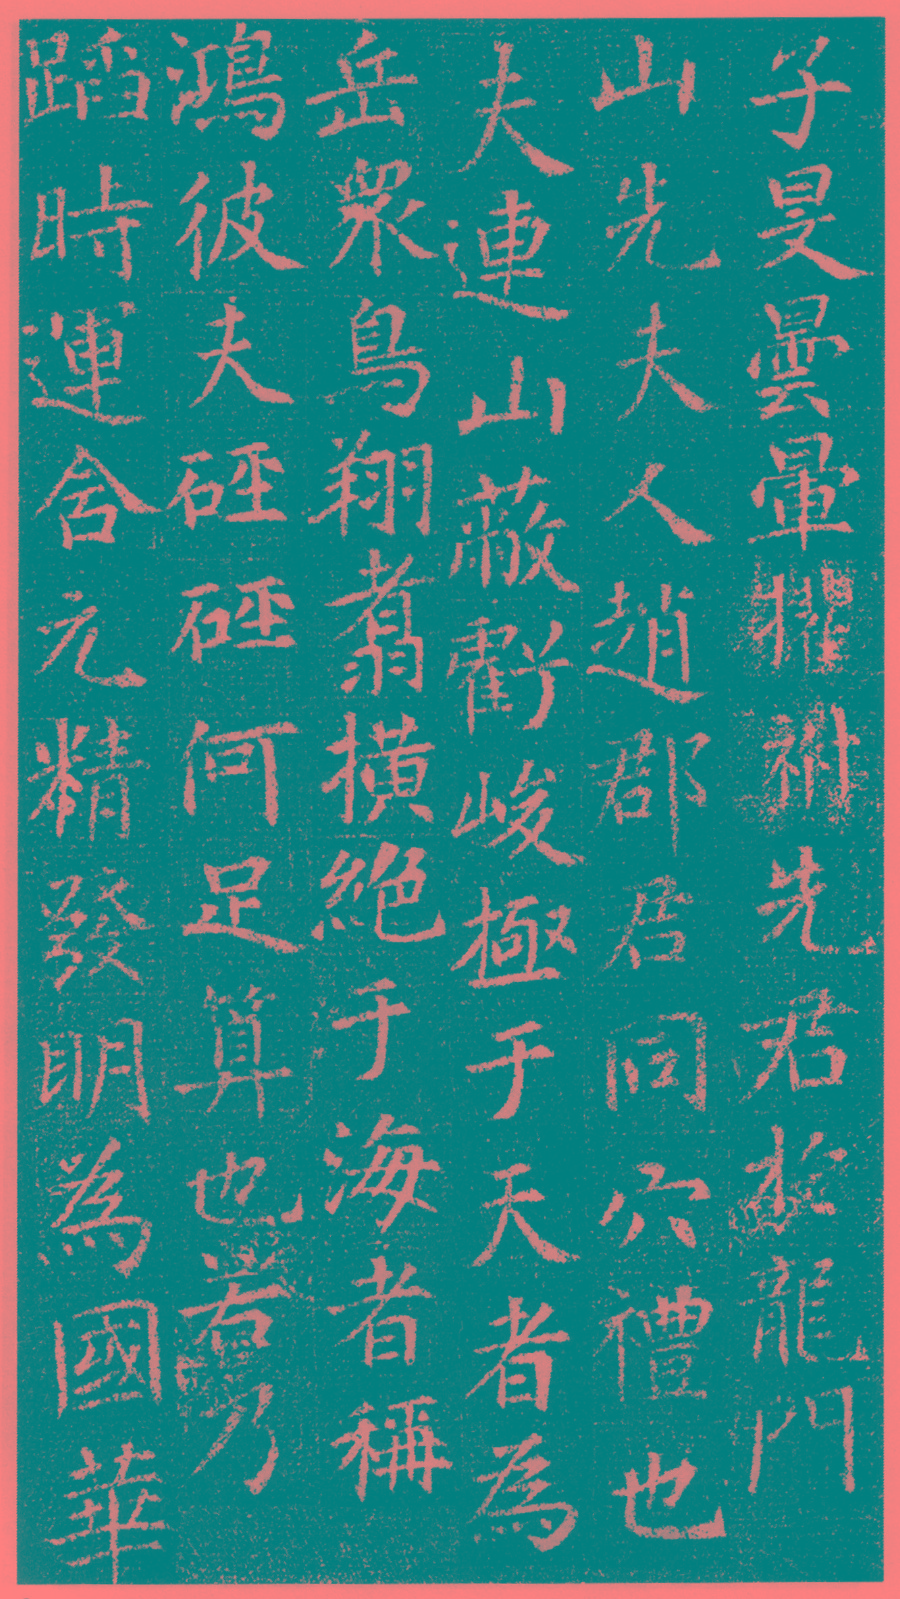 子旻曇暈耀祔先君於龍門
山先夫人趙郡君同穴禮也
夫連山蔽虧峻極于天者為
岳衆鳥翔翥橫絕于海者稱
鴻彼夫硜硜何足算也若乃
蹈時運含元精發明為國華